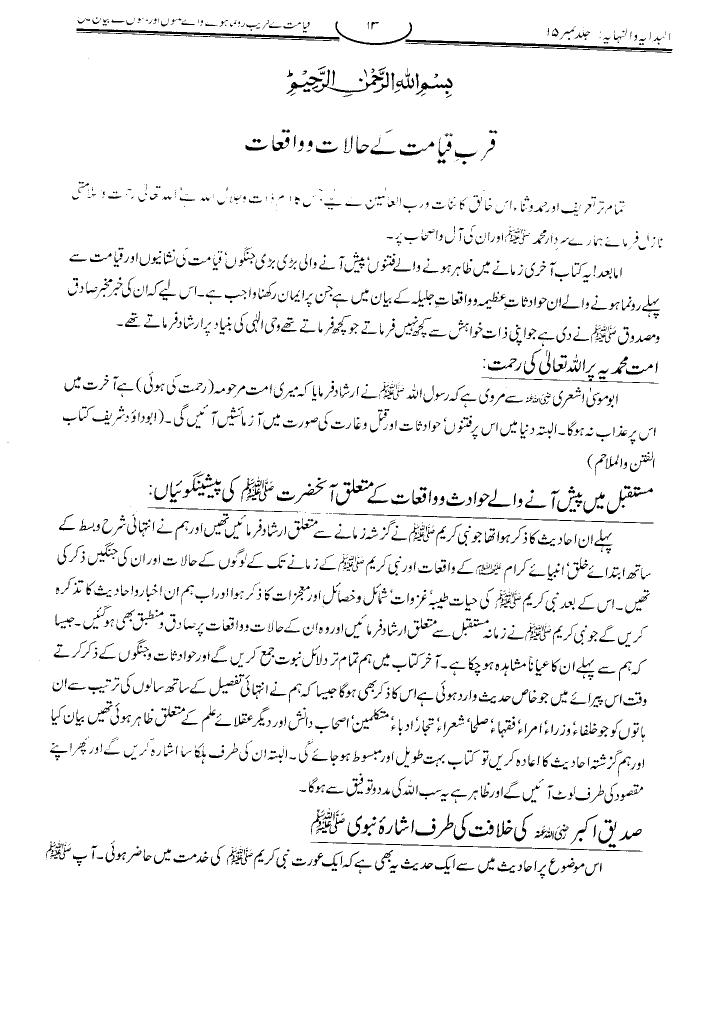 البدایہ والنہایہ: جلد نمبر ۱۵
۱۳
قیامت کے قریب رونما ہونے والے فتنوں اور جنگوں کے بیان میں
بسم اللہ الرحمٰن الرحیم
قربِ قیامت کے حالات و واقعات
تمام تر تعریف اور حمد و ثناء اس خالق کائنات و رب العالمین کے لیے جس کا نام ذات و جلال اللہ ہے، اللہ تعالیٰ رحمت و سلامتی
نازل فرمائے ہمارے سردار محمد ﷺ اور ان کی آل و اصحاب پر۔
امابعد! یہ کتاب آخری زمانے میں ظاہر ہونے والے فتنوں، پیش آنے والی بڑی بڑی جنگوں، قیامت کی نشانیوں اور قیامت سے
پہلے رونما ہونے والے ان حوادثات عظیمہ و واقعات جلیلہ کے بیان میں ہے جن پر ایمان رکھنا واجب ہے۔ اس لیے کہ ان کی خبر مخبر صادق
و مصدوق ﷺ نے دی ہے جو اپنی ذات خواہش سے کچھ نہیں فرماتے جو کچھ فرماتے تھے وحی الٰہی کی بنیاد پر ارشاد فرماتے تھے۔
امت محمدیہ پر اللہ تعالیٰ کی رحمت:
ابوموسیٰ اشعری رضی اللہ عنہ سے مروی ہے کہ رسول اللہ ﷺ نے ارشاد فرمایا کہ میری امت مرحومہ (رحمت کی ہوئی) ہے آخرت میں
اس پر عذاب نہ ہوگا۔ البتہ دنیا میں اس پر فتنوں، حوادثات اور قتل و غارت کی صورت میں آزمائشیں آئیں گی۔ (ابوداؤد شریف کتاب
الفتن والملاحم)
مستقبل میں پیش آنے والے حوادث و واقعات کے متعلق آنحضرت ﷺ کی پیشینگوئیاں:
پہلے ان احادیث کا ذکر ہوا تھا جو نبی کریم ﷺ نے گزشتہ زمانے سے متعلق ارشاد فرمائیں تھیں اور ہم نے انتہائی شرح و بسط کے
ساتھ ابتدائے خلق، انبیائے کرام علیہم السلام کے واقعات اور نبی کریم ﷺ کے زمانے تک کے لوگوں کے حالات اور ان کی جنگیں ذکر کی
تھیں۔ اس کے بعد نبی کریم ﷺ کی حیات طیبہ، غزوات، شمائل و خصائل اور معجزات کا ذکر ہوا اور اب ہم ان اخبار و احادیث کا تذکرہ
کریں گے جو نبی کریم ﷺ نے زمانہ مستقبل سے متعلق ارشاد فرمائیں اور وہ ان کے حالات و واقعات پر صادق و منطبق بھی ہو گئیں۔ جیسا
کہ ہم سے پہلے ان کا عیاناً مشاہدہ ہو چکا ہے۔ آخر کتاب میں ہم تمام تر دلائل نبوت جمع کریں گے اور حوادثات و جنگوں کے ذکر کرتے
وقت اس پیرائے میں جو خاص حدیث وارد ہوئی ہے اس کا ذکر بھی ہوگا جیسا کہ ہم نے انتہائی تفصیل کے ساتھ سالوں کی ترتیب سے ان
باتوں کو جو خلفاء، وزراء، امراء، فقہاء، صلحاء، شعراء، تجار، ادباء، متکلمین، اصحاب دانش اور دیگر عقلائے علم کے متعلق ظاہر ہوئی تھیں بیان کیا
اور ہم گزشتہ احادیث کا اعادہ کریں تو کتاب بہت طویل اور مبسوط ہو جائے گی۔ البتہ ان کی طرف ہلکا سا اشارہ کریں گے اور پھر اپنے
مقصود کی طرف لوٹ آئیں گے اور ظاہر ہے یہ سب اللہ کی مدد و توفیق سے ہوگا۔
صدیق اکبر رضی اللہ عنہ کی خلافت کی طرف اشارۂ نبوی ﷺ
اس موضوع پر احادیث میں سے ایک حدیث یہ بھی ہے کہ ایک عورت نبی کریم ﷺ کی خدمت میں حاضر ہوئی۔ آپ ﷺ